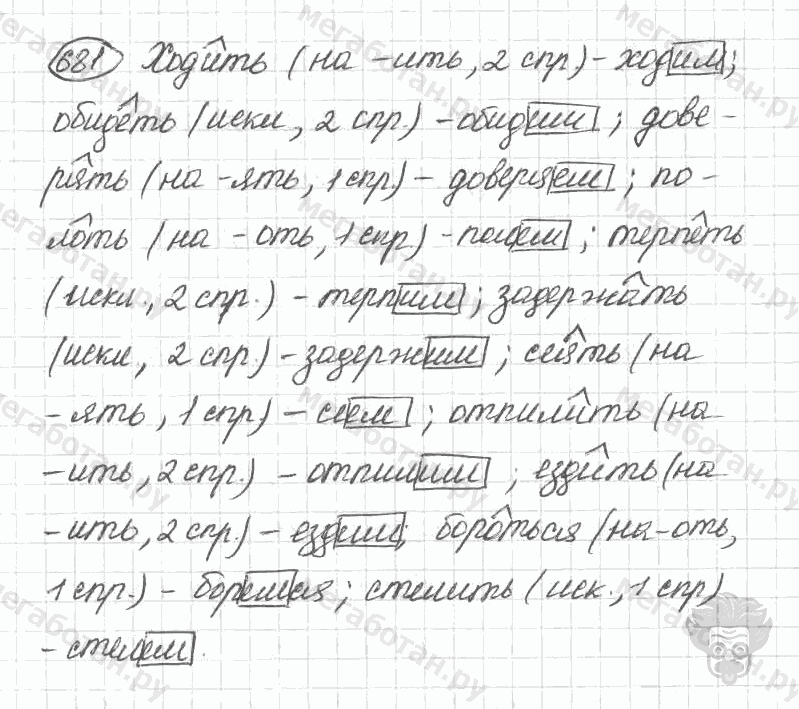 681 Ходить (на -ить, 2 спр) - ходим;
обидеть (искл, 2 спр.) - обидим; дове-
рять (на -ять, 1 спр) - доверяем; по-
лоть (на -оть, 1 спр) - полем; терпеть
(искл., 2 спр.) - терпим; задержать
(искл, 2 спр.) - задержим; сеять (на
- ять, 1 спр) - сеем; отпилить (на
-ить, 2 спр.) - отпилим; ездить (на
-ить, 2 спр.) - ездим; бороться (на -оть,
1 спр.) - боремся; стелить (иск., 1 спр)
- стелем.
мегаботан.ру